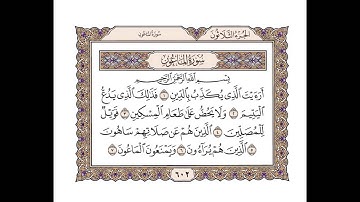 الجزء الثلاثون
سورة الماعون
سورة الماعون
بِسْمِ اللَّهِ الرَّحْمَٰنِ الرَّحِيمِ
أَرَءَيْتَ الَّذِي يُكَذِّبُ بِالدِّينِ ١ فَذَٰلِكَ الَّذِي يَدُعُّ
الْيَتِيمَ ٢ وَلَا يَحُضُّ عَلَىٰ طَعَامِ الْمِسْكِينِ ٣ فَوَيْلٌ
لِّلْمُصَلِّينَ ٤ الَّذِينَ هُمْ عَن صَلَاتِهِمْ سَاهُونَ
٥ الَّذِينَ هُمْ يُرَاءُونَ ٦ وَيَمْنَعُونَ الْمَاعُونَ ٧
٦٠٢